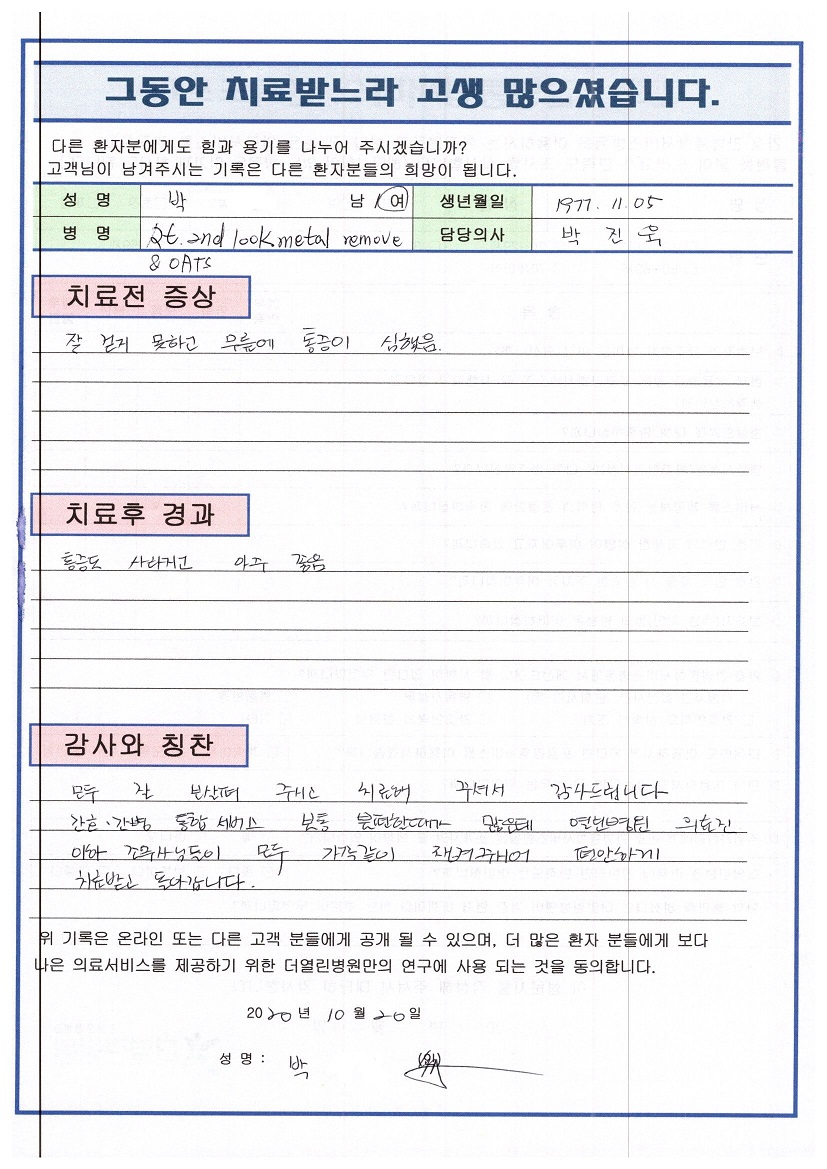 그동안 치료받느라 고생 많으셨습니다.
다른 환자분에게도 힘과 용기를 나누어 주시겠습니까?
고객님이 남겨주시는 기록은 다른 환자분들의 희망이 됩니다.
성 명 박 남 / 여 생년월일 1977. 11. 05
병 명 Rt. 2nd look metal remove 담당의사 박 진 욱
& OATs
치료전 증상
잘 걷지 못하고 무릎에 통증이 심했음.
치료후 경과
통증도 사라지고 아주 좋음
감사와 칭찬
모두 잘 보살펴 주시고 치료해 주셔서 감사드립니다
간호·간병 통합 서비스 보통 불편한데가 많은데 연린병원 의료진
이하 조무사님들이 모두 가족같이 챙겨주어 편안하게
치료받고 돌아갑니다.
위 기록은 온라인 또는 다른 고객 분들에게 공개 될 수 있으며, 더 많은 환자 분들에게 보다
나은 의료서비스를 제공하기 위한 더열린병원만의 연구에 사용 되는 것을 동의합니다.
2020년 10월 20일
성 명 : 박 (인)